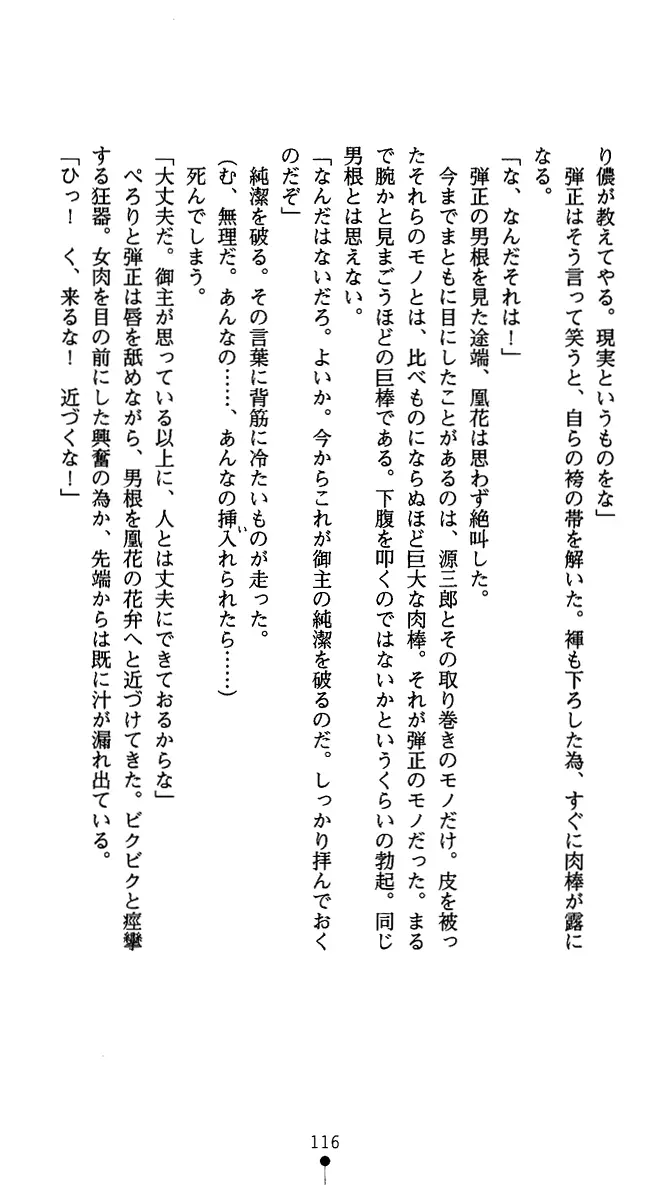 り儂が教えてやる。現実というものをな」
弾正はそう言って笑うと、自らの袴の帯を解いた。褌も下ろした為、すぐに肉棒が露に
なる。
「な、なんだそれは！」
弾正の男根を見た途端、凰花は思わず絶叫した。
今までまともに目にしたことがあるのは、源三郎とその取り巻きのモノだけ。皮を被っ
たそれらのモノとは、比べものにならぬほど巨大な肉棒。それが弾正のモノだった。まる
で腕かと見まごうほどの巨棒である。下腹を叩くのではないかというくらいの勃起。同じ
男根とは思えない。
「なんだはないだろ。よいか。今からこれが御主の純潔を破るのだ。しっかり拝んでおく
のだぞ」
純潔を破る。その言葉に背筋に冷たいものが走った。
（む、無理だ。あんなの……、あんなの挿入いれられたら……）
死んでしまう。
「大丈夫だ。御主が思っている以上に、人とは丈夫にできておるからな」
ぺろりと弾正は唇を舐めながら、男根を凰花の花弁へと近づけてきた。ビクビクと痙攣
する狂器。女肉を目の前にした興奮の為か、先端からは既に汁が漏れ出ている。
「ひっ！　く、来るな！　近づくな！」
116